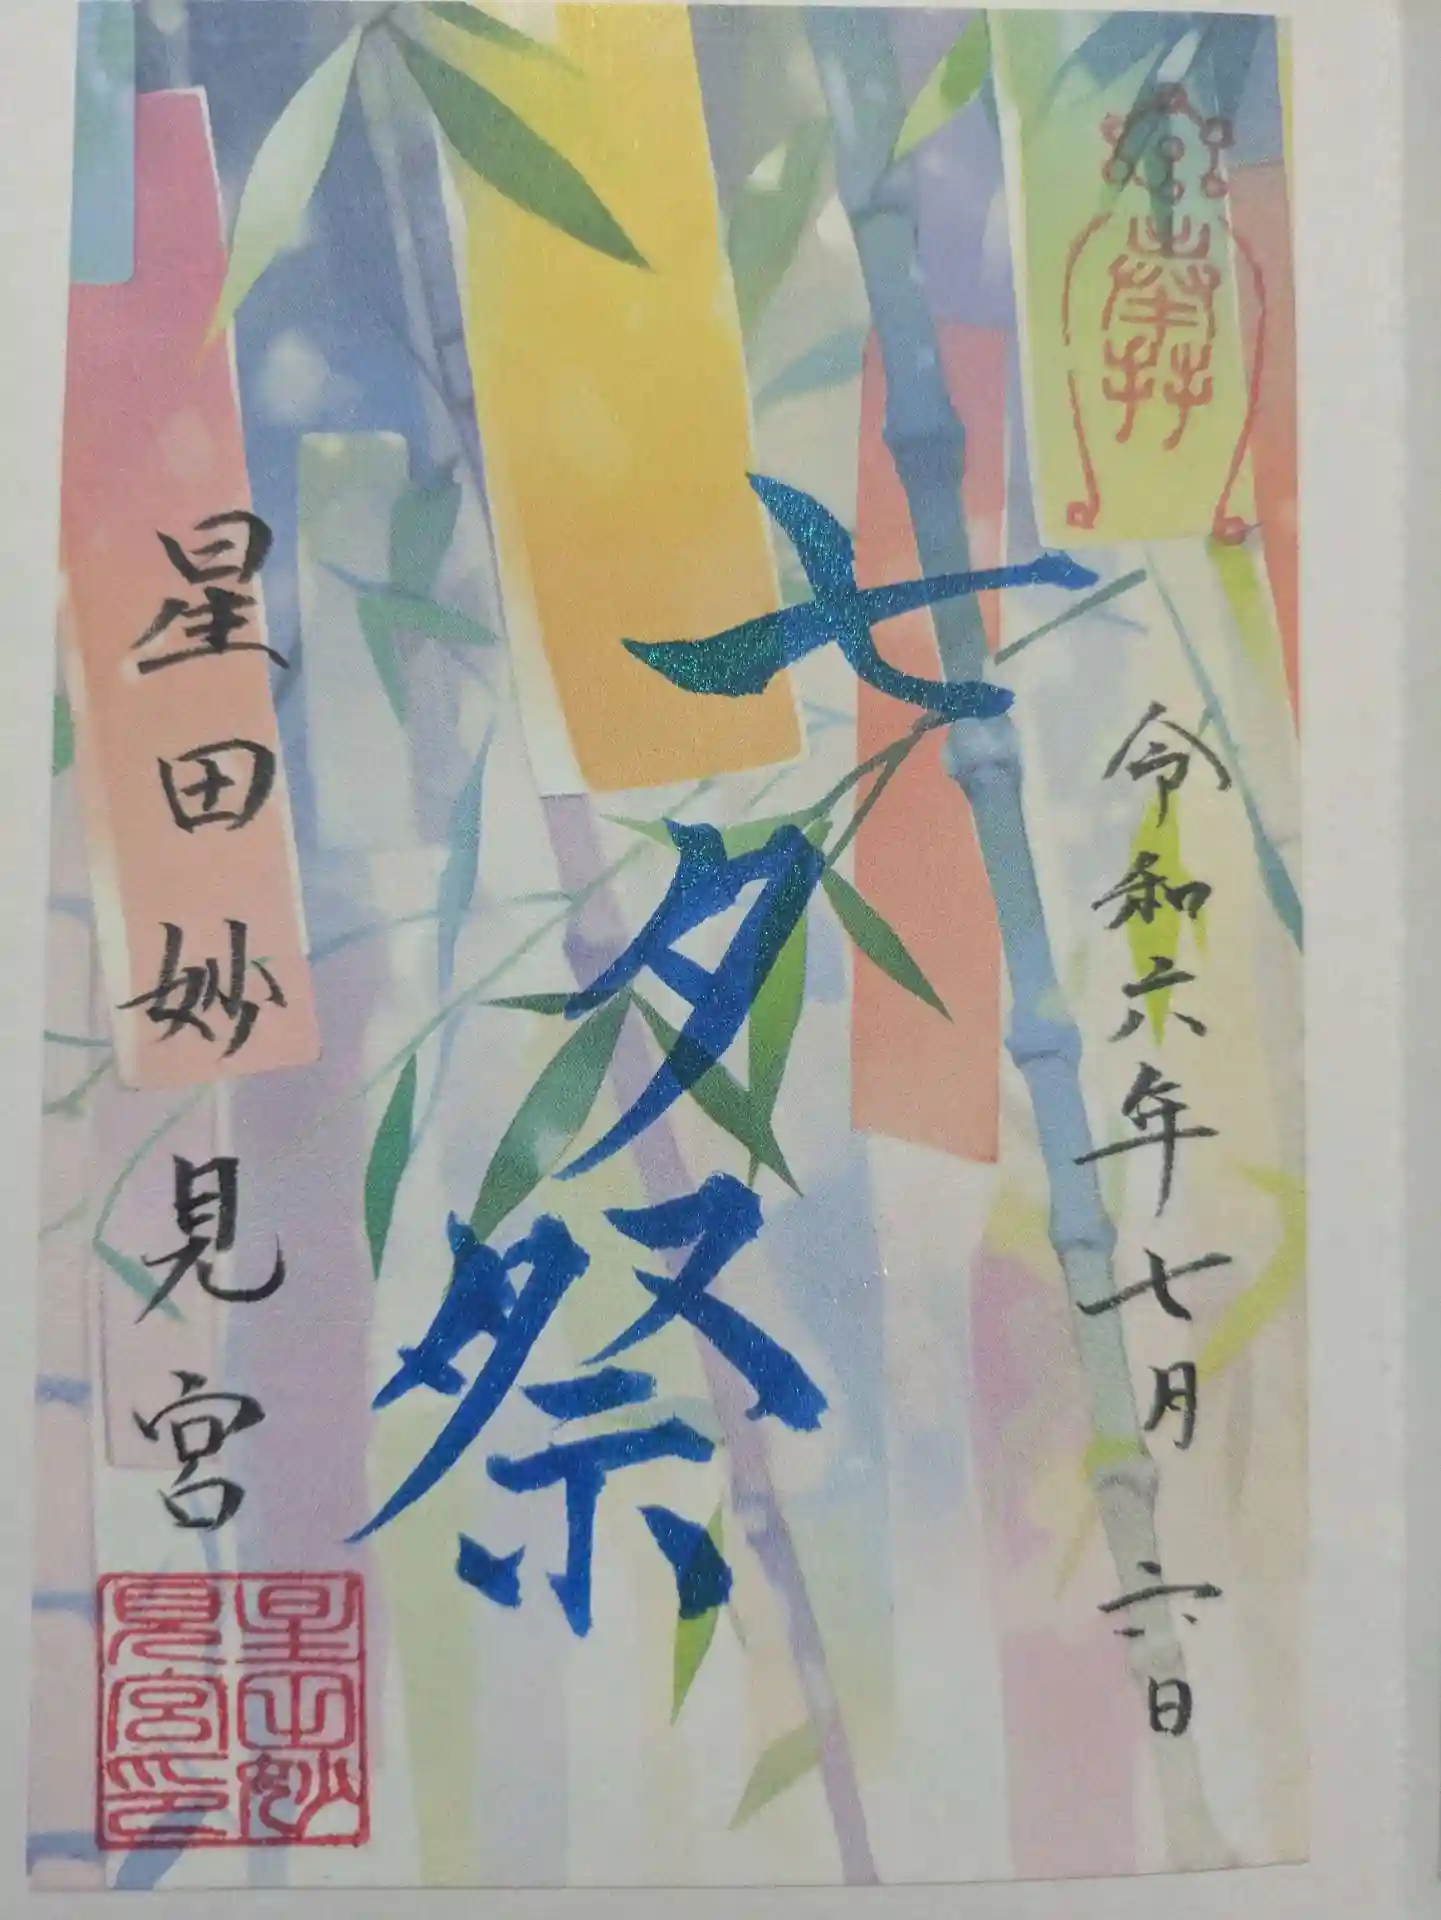 令和六年七月六日
七夕祭
星田妙見宮
星田妙
見宮印